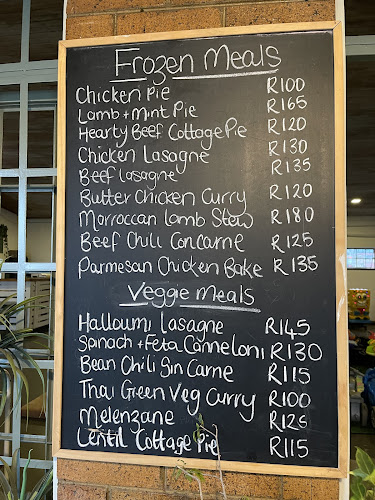 Frozen Meals
Chicken Pie R100
Lamb + Mint Pie R165
Hearty Beef Cottage Pie R120
Chicken Lasagne R130
Beef lasagne R135
Butter Chicken Curry R120
Morroccan lamb Stew R180
Beef Chili Concarne R125
Parmesan Chicken Bake R135
Veggie meals
Halloumi lasagne R145
Spinach + Feta Canneloni R130
Bean Chili Sin Carne R115
Thai Green Veg Curry R100
Melenzane R126
Lentil Cottage Pie R115